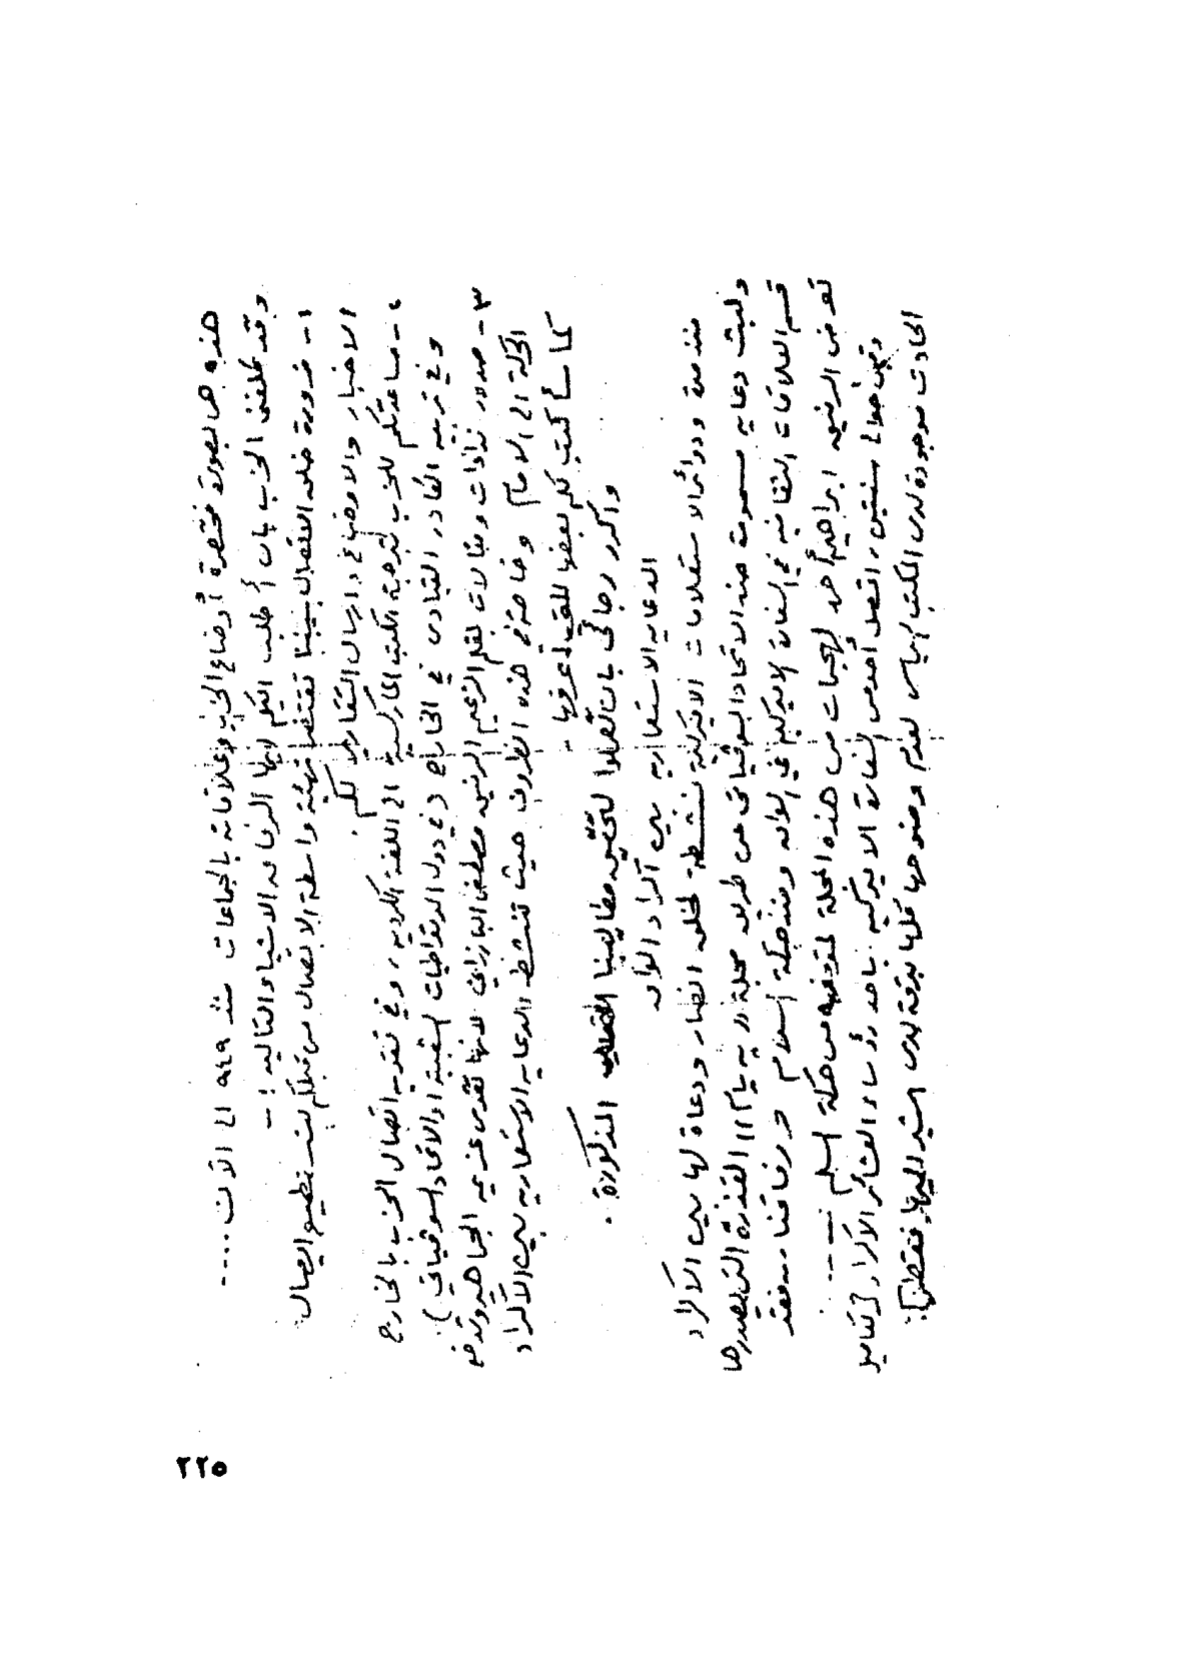 هذه هي بصورة مختصرة أوضاع الحزب وعلاقاته بالجماعات منذ ٩٤٩ الى الآن ....
وقد كلفني الحزب بأن أطلب اليكم ايها الرفاق الاشياء التالية :-
١- ضرورة خلق الاتصال بيننا تقتضي تهيئة واسطة الاتصال من قبلكم لتنظيم ايصال
الاخبار والاوضاع وارسال التقارير لكم.
٢- مساعدتكم للحزب لترجمة الكتب الماركسية الى اللغة الكردية، وفي تقوية اتصال الحزب بالخارج
وفي تربية الكادر القيادي في الخارج (في دول الديمقراطيات الشعبية او الاتحاد السوفياتي)
٣- صدور نداءات ومقالات بقلم الزعيم الرفيق مصطفى البارزاني لانها تقوي عزيمة الجماهير وتدفع
الحركة الى الامام وخاصة في هذه الظروف حيث تنشط الدعاية الاستعمارية بين الاكراد
كما كتب لكم بعضها للتعرفها -
واكرر رجائي بان تعملوا لتحقيق مطاليبنا المذكورة .
الدعاية الاستعمارية بين اكراد العراق
منذ مدة ودوائر الاستعلامات الامريكية نشطة لخلق انصار ودعاة لها بين الاكراد
ولبث دعاية مسمومة ضد الاتحاد السوفياتي عن طريق مجلة القذرة التي يصدرها
قسم العلاقات الثقافية في السفارة الامريكية في العراق ومنذ حركة السلام ورفاقنا فقد
تعرض الرفيق ابراهيم أحمد لهجمات من هذه المجلة لموقفه من حركة السلم ....
وقبل حوالي سنتين، اتصل أحد من السفارة الامريكية بأحد رؤساء العشائر الاكراد
الحادث موجودة لدى المكتب السياسي لعدم وضوحها
٢٢٥